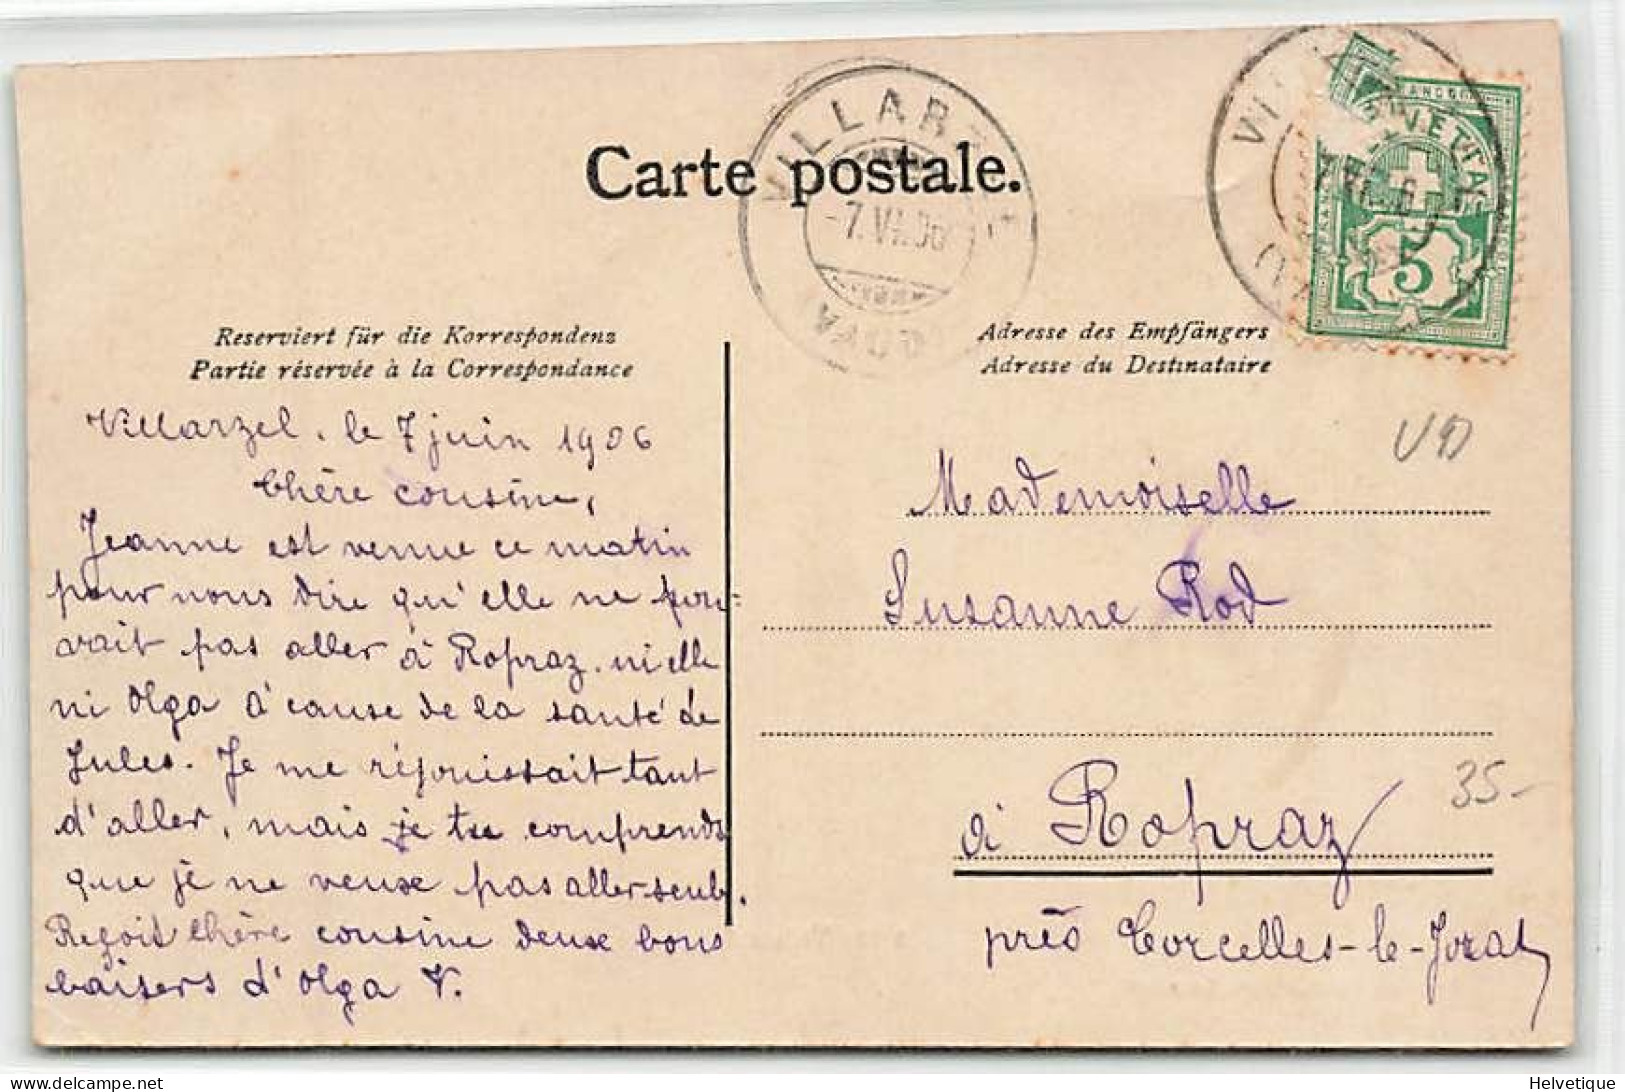 Carte postale.
VILLARZEL
-7.VI.06
VAUD
HELVETIA
5
Reserviert für die Korrespondenz
Partie réservée à la Correspondance
Adresse des Empfängers
Adresse du Destinataire
Villarzel. le 7 juin 1906
Chère cousine,
Jeanne est venue ce matin
pour nous dire qu'elle ne pou=
vait pas aller à Ropraz. ni elle
ni Olga à cause de la santé de
Jules. Je me réjouissait tant
d'aller, mais je tu comprends
que je ne veuse pas aller seule.
Reçoit chère cousine deuse bons
baisers d'Olga V.
VD
Mademoiselle
Susanne Rod
35-
à Ropraz
près Corcelles-le-Jorat
Helvetique